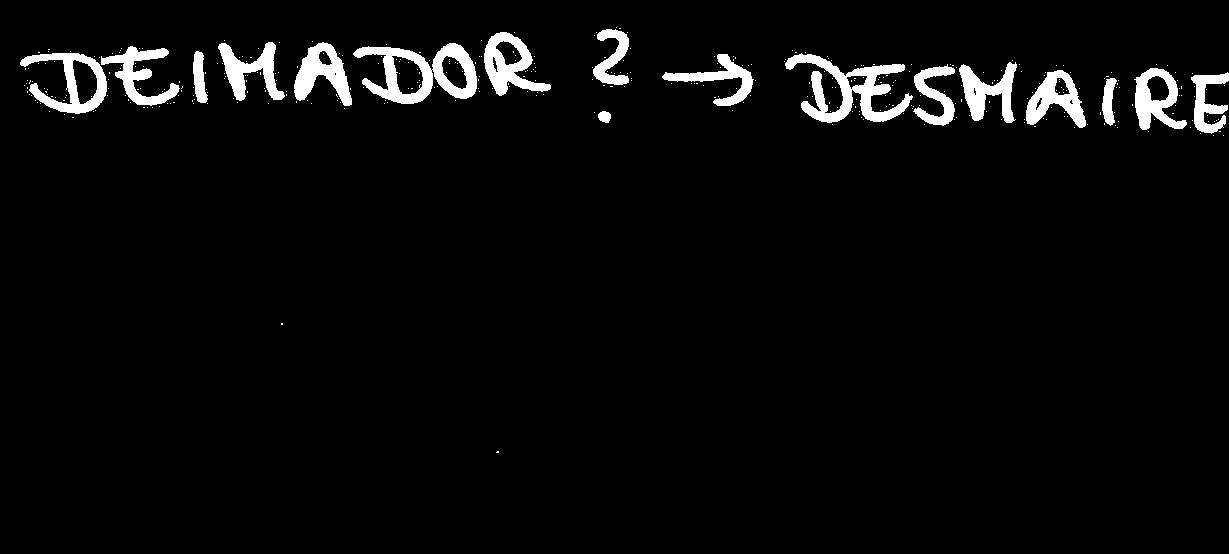 DEIMADOR ? → DESMAIRE